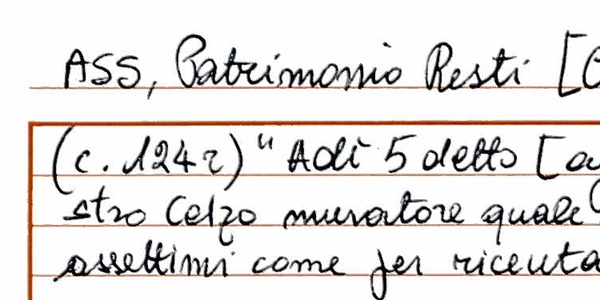 ASS, Patrimonio Resti [
(c. 124 r) " Adì 5 detto [
stro Celzo muratore quale
assettimi come per riceuta